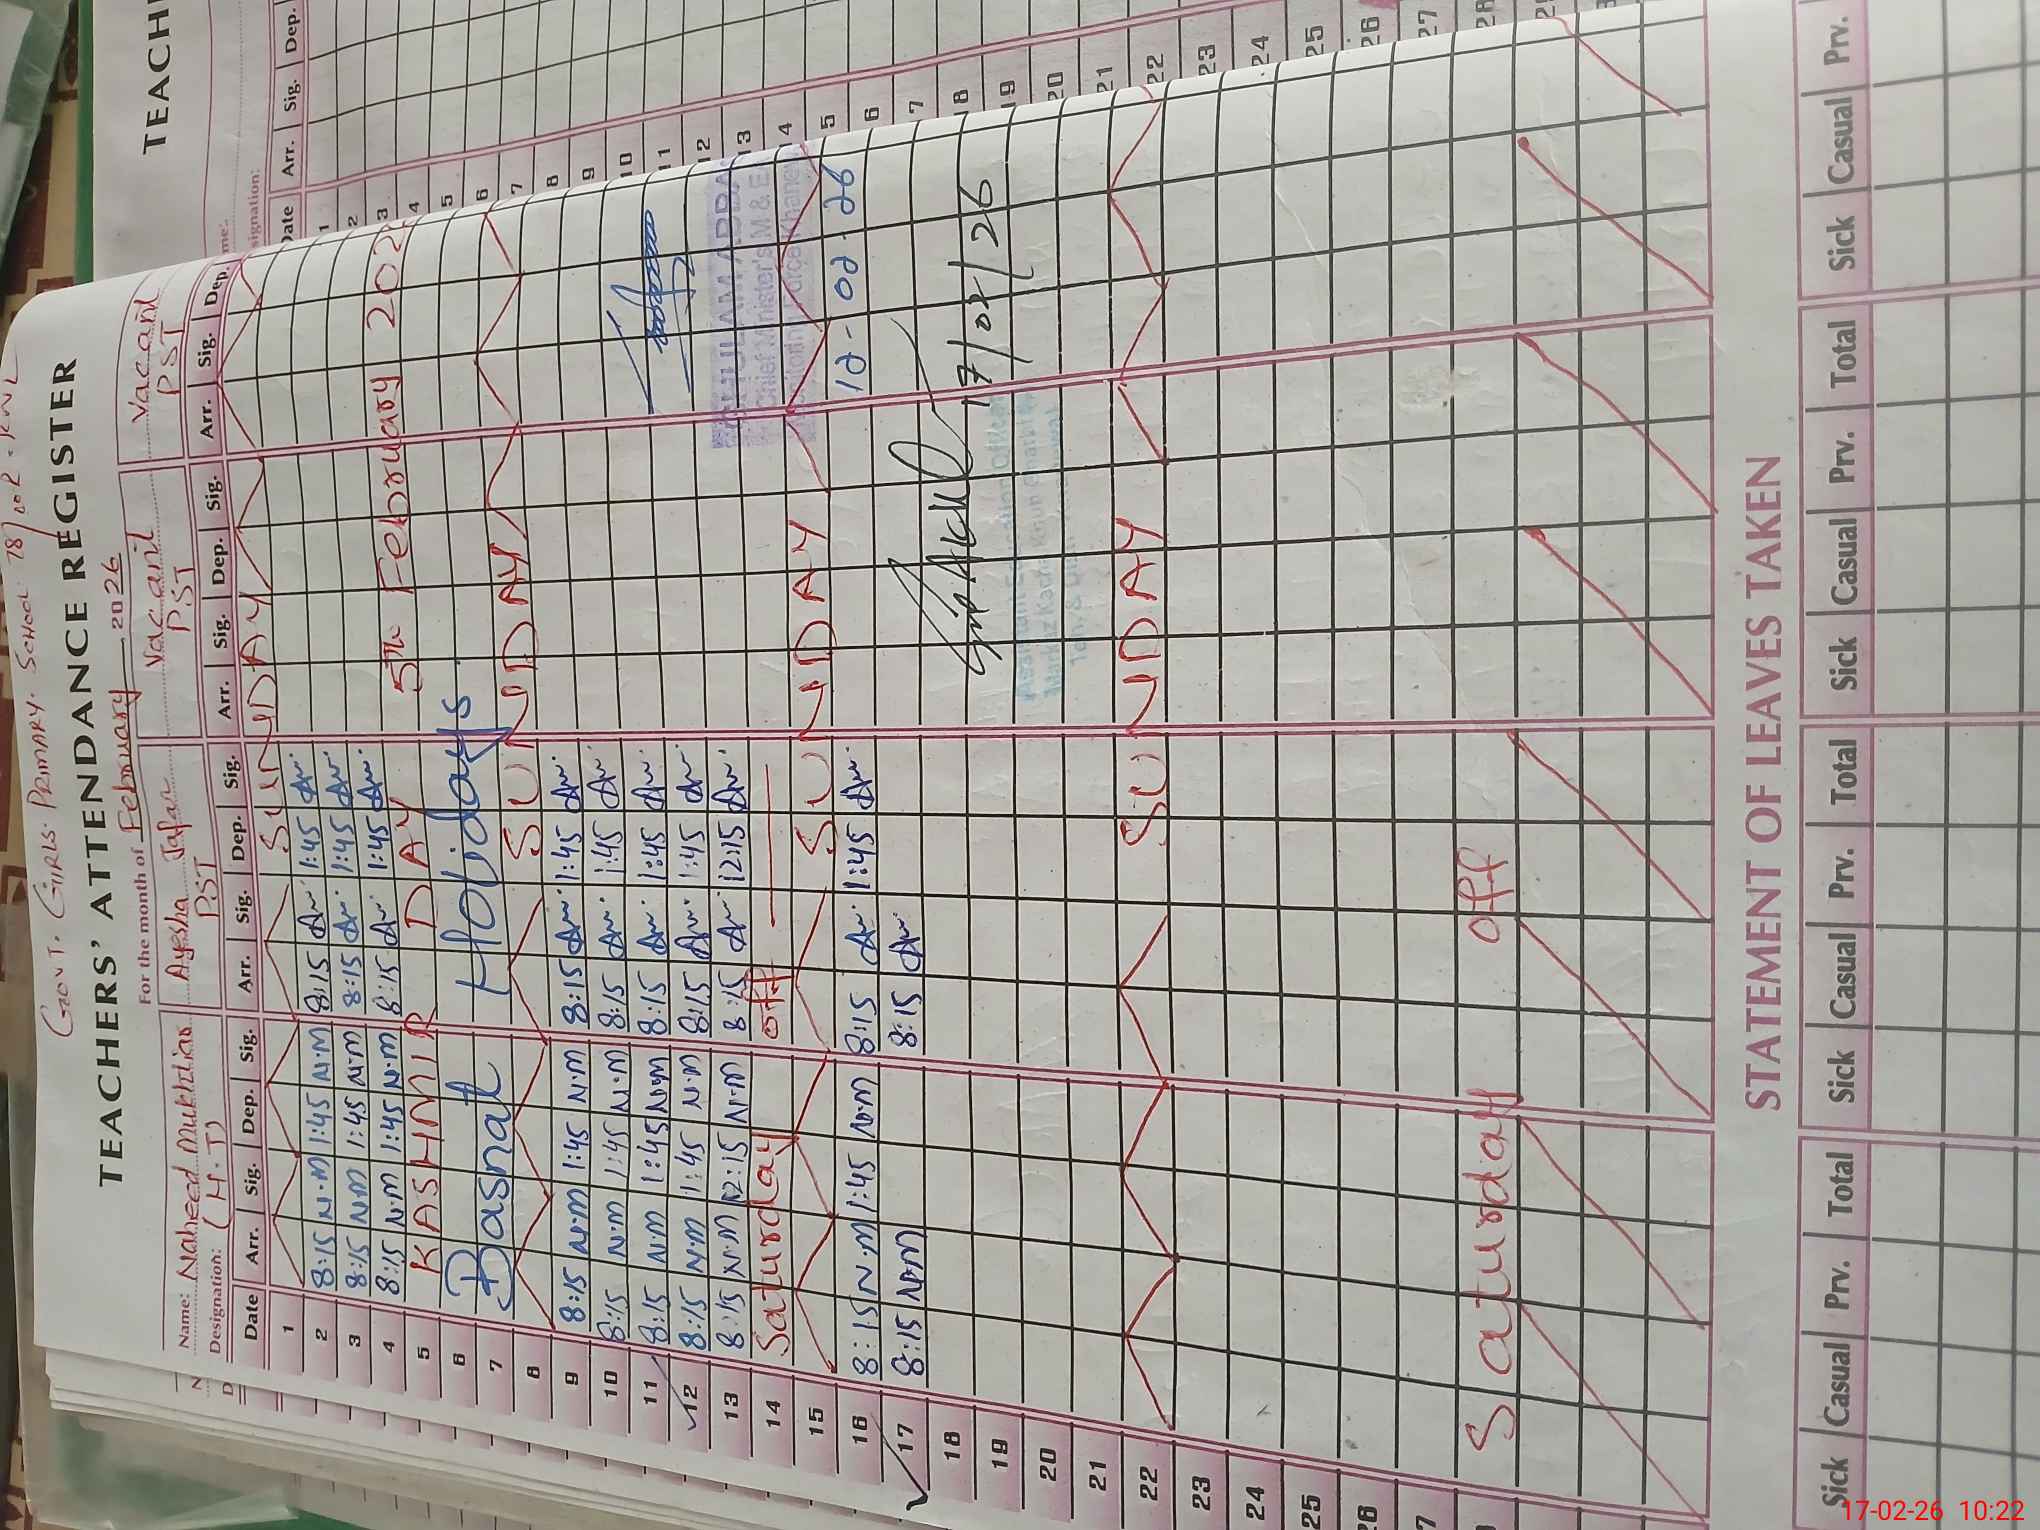 GOVT. GIRLS. PRIMARY. SCHOOL
TEACHERS' ATTENDANCE REGISTER
For the month of February 2026
Name: Naheed Mukhtiar Ayesha Jafar Vacant Vacant
Designation: (H.T) PST PST PST
Date Arr. Sig. Dep. Sig. Arr. Sig. Dep. Sig. Arr. Sig. Dep. Sig. Arr. Sig. Dep.
1 SUNDAY
2 8:15 N.M 1:45 N.M 8:15 1:45
3 8:15 N.M 1:45 N.M 8:15 1:45
4 8:15 N.M 1:45 N.M 8:15 1:45
5 KASHMIR DAY 5th February 202
6 Basnat Holidays
7
8 SUNDAY
9 8:15 N.M 1:45 N.M 8:15 1:45
10 8:15 N.M 1:45 N.M 8:15 1:45
11 8:15 N.M 1:45 N.M 8:15 1:45
12 8:15 N.M 1:45 N.M 8:15 1:45
13 8:15 N.M 12:15 N.M 8:15 12:15
GHULAM ABBA
Chief Minister's M & E
14 Saturday off
15 SUNDAY
12-02-26
16 8:15 N.M 1:45 N.M 8:15 1:45
17 8:15 N.M 8:15
18
17/02/26
19
20
21
22 SUNDAY
23
24
25
26
7
Saturday off
STATEMENT OF LEAVES TAKEN
Sick Casual Prv. Total Sick Casual Prv. Total Sick Casual Prv. Total Sick Casual Prv.
TEACH
Date Arr. Sig. Dep.
1
2
3
4
5
6
7
8
9
10
11
12
13
14
15
16
17
18
19
20
21
22
23
24
25
26
27
28
17-02-26 10:22